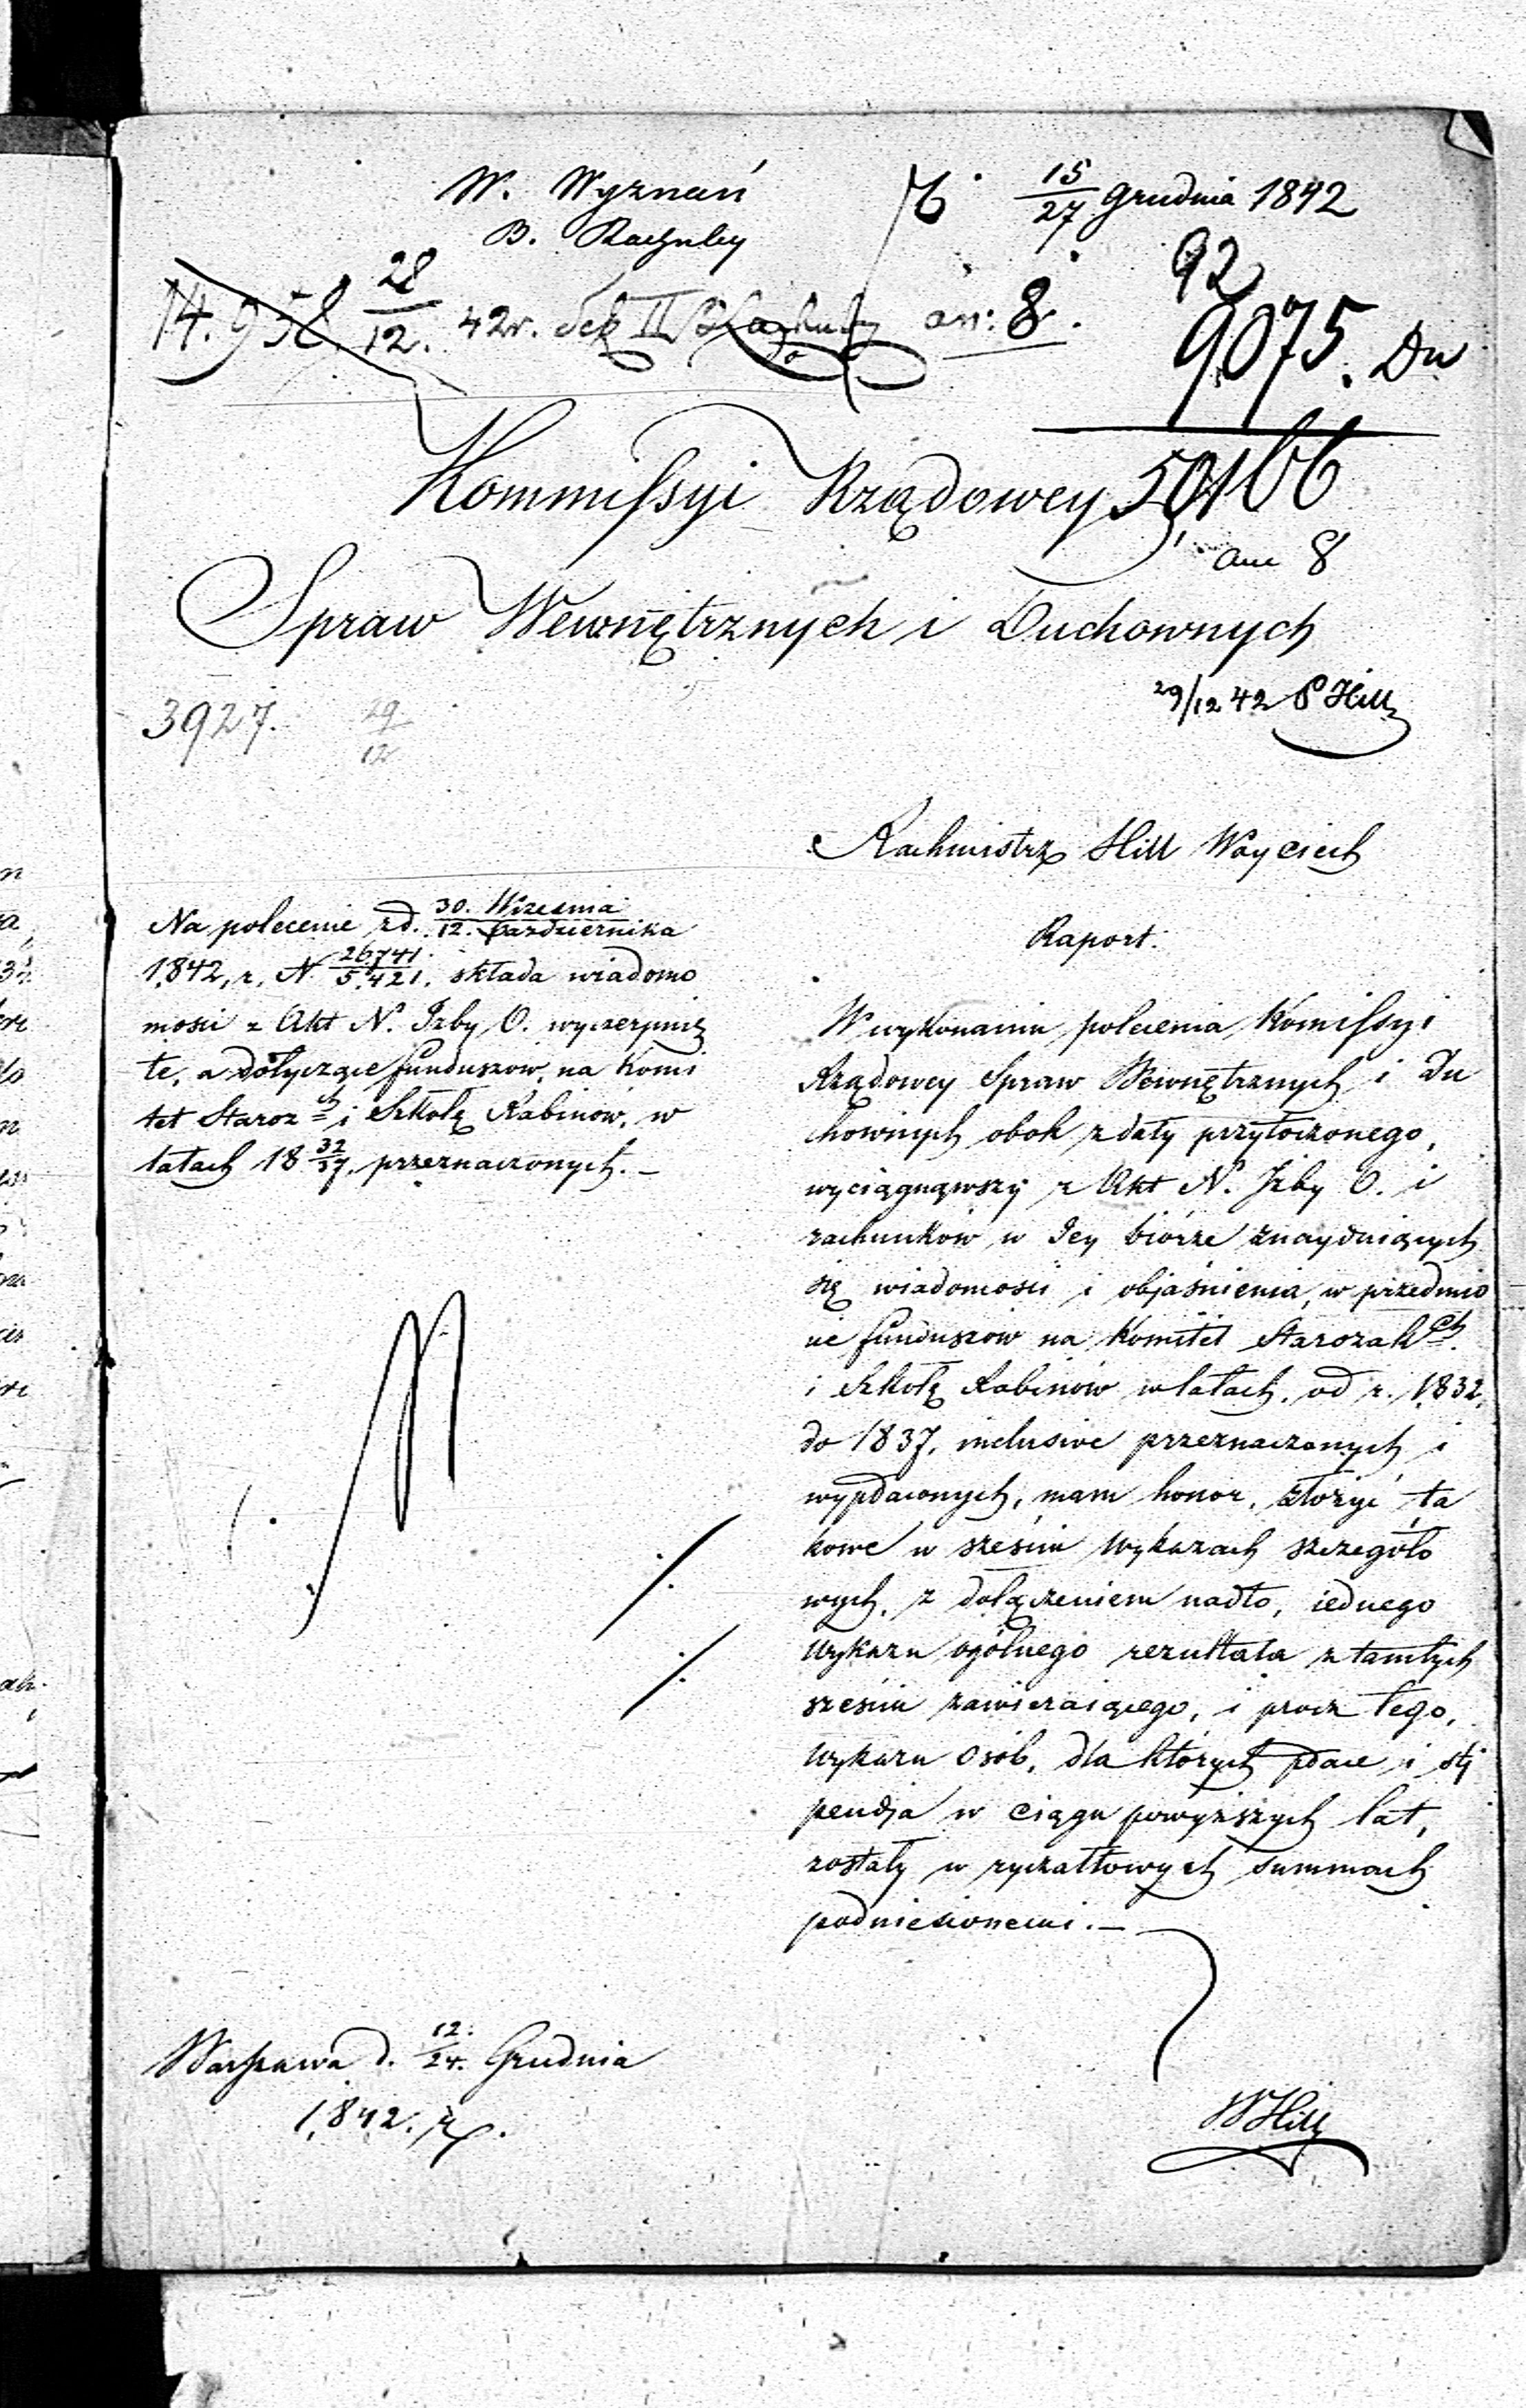 W. Wyznań
B. Rachuby
15/27 Grudnia 1842
14.958. 28/12. 42r. Sek II an: 8.
92
9075. Du
Kommissyi Rządowey
ann 8
Spraw Wewnętrznych i Duchownych
29/12 42 P Hill
3927. 29/12
Rachmistrz Hill Woyciech
Na polecenie z d. 30. Września/12. Października
1842, r. N. 26741/5.421. składa wiadomo
mości z Akt N. Izby O. wyczerpnię
te, a dotyczące funduszow, na Komi
tet Staroz ch i Szkołę Rabinow, w
latach 18 32/37. przeznaczonych. –
Raport.
W wykonaniu polecenia Komissyi
Rządowey Spraw Wewnętrznych i Du
chownych obok z daty przytoczonego,
wyciągnąwszy z Akt N. Izby O. i
rachunków w Iey biórze znayduiących
się wiadomości i objaśnienia, w przedmio
cie funduszow na Komitet Starozak ch.
i Szkołę Rabinów w latach, od r. 1832,
do 1837, inclusive przeznaczonych i
wypłaconych, mam honor, złożyć ta
kowe w sześciu Wykazach szczegóło
wych, z dołączeniem nadto, iednego
Wykazu ogólnego rezultata z tamtych
sześciu zawieraiącego, i procz tego,
Wykazu Osób, dla których płace i sty
pendja w ciągu powyższych lat,
zostały w ryczałtowych summach
podniesionemi. –
Warszawa d. 12./24. Grudnia
1842. r.
W Hill